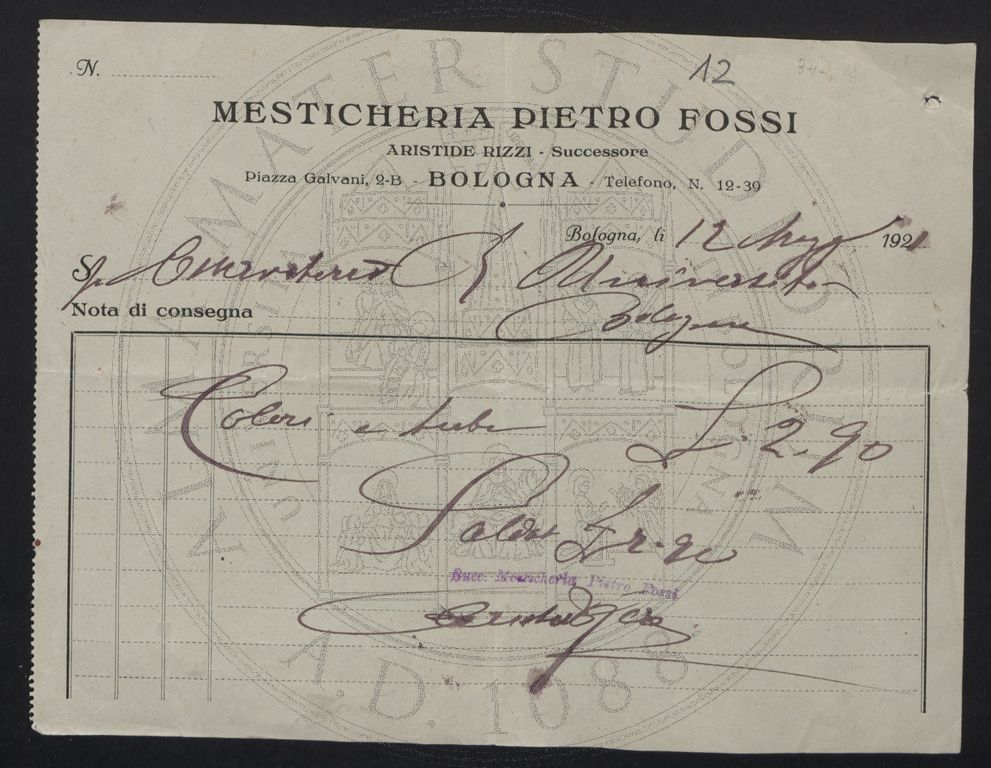 N.
12
MESTICHERIA PIETRO FOSSI
ARISTIDE RIZZI - Successore
Piazza Galvani, 2-B - BOLOGNA - Telefono, N. 12-39
Bologna, li 12 1921
Osservatorio R Università
Bologna
Nota di consegna
Colori a tubi L. 2.90
Saldat L 2.90
Succ. Mesticheria Pietro Fossi
ALMA MATER STUDIORUM
A.D. 1088